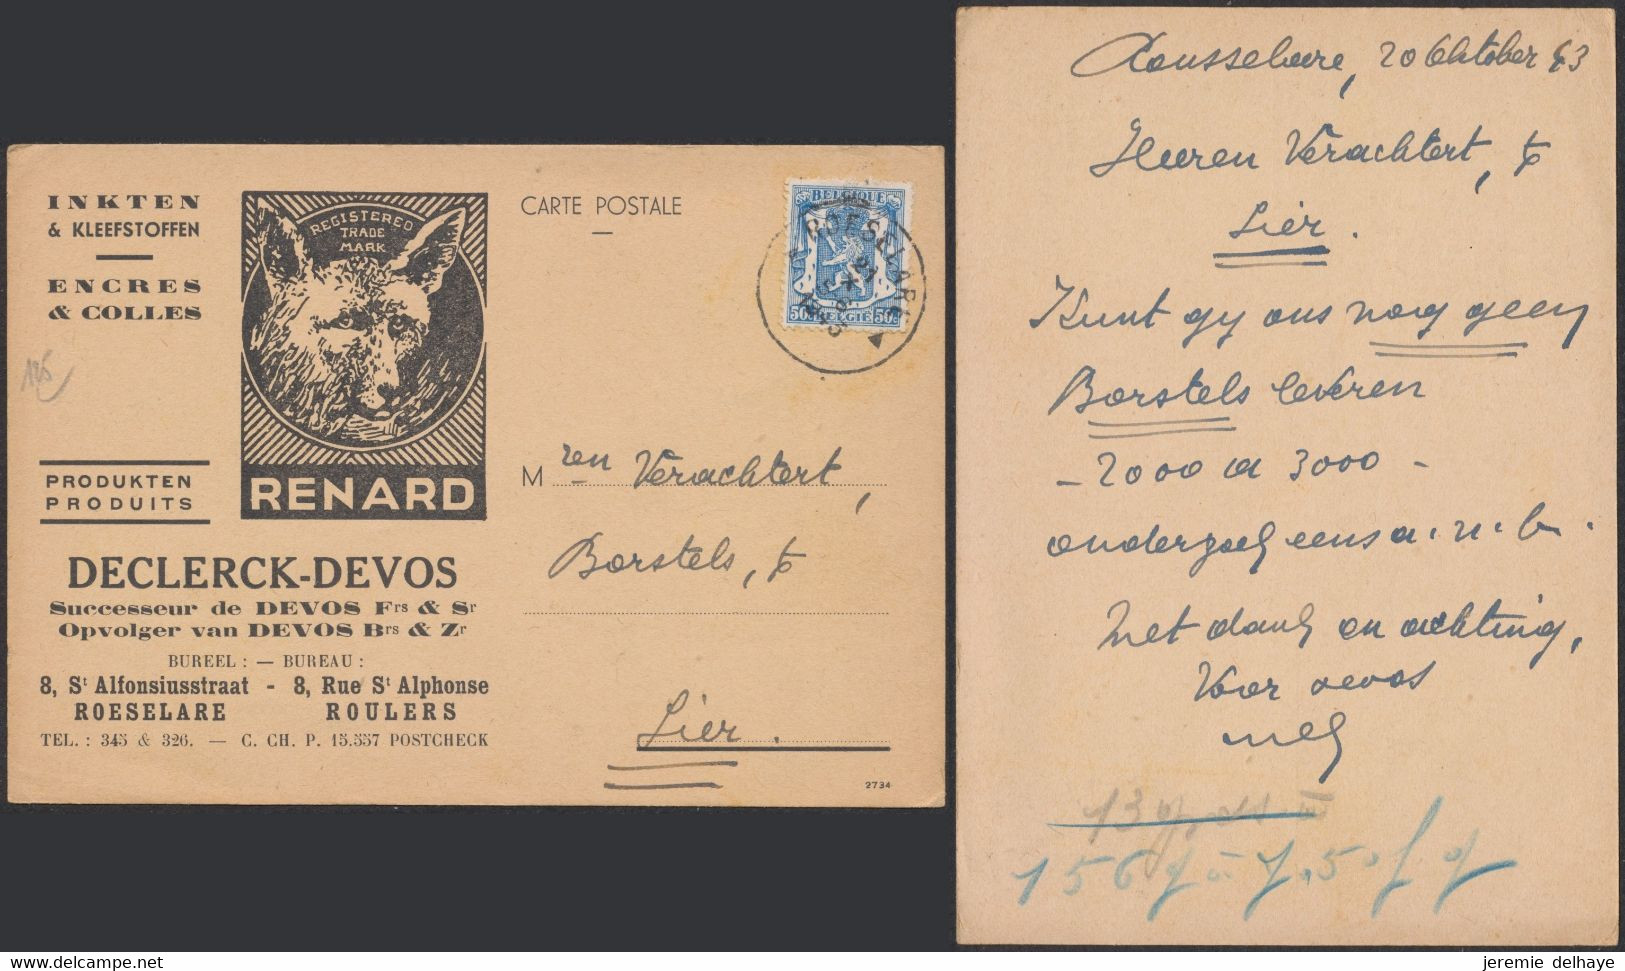 INKTEN
& KLEEFSTOFFEN
ENCRES
& COLLES
REGISTERED
TRADE
MARK
RENARD
PRODUKTEN
PRODUITS
DECLERCK-DEVOS
Successeur de DEVOS Frs & Sr
Opvolger van DEVOS Brs & Zr
BUREEL : — BUREAU :
8, St Alfonsiusstraat - 8, Rue St Alphonse
ROESELARE ROULERS
TEL. : 345 & 326. — C. CH. P. 15.557 POSTCHECK
125
CARTE POSTALE
BELGIQUE
50c BELGIE 50c
ROESELARE
21
1943
Mren Verachtert,
Borstels,
Lier.
2734
Rousselaere, 20 Oktober 43
Heeren Verachtert,
Lier.
Kunt gy ons nog geen
Borstels leveren
- 2000 a 3000 -
onderzoek eens a.u.b.
Met dank en achting,
Voor devos
156 7.50
jeremie delhaye